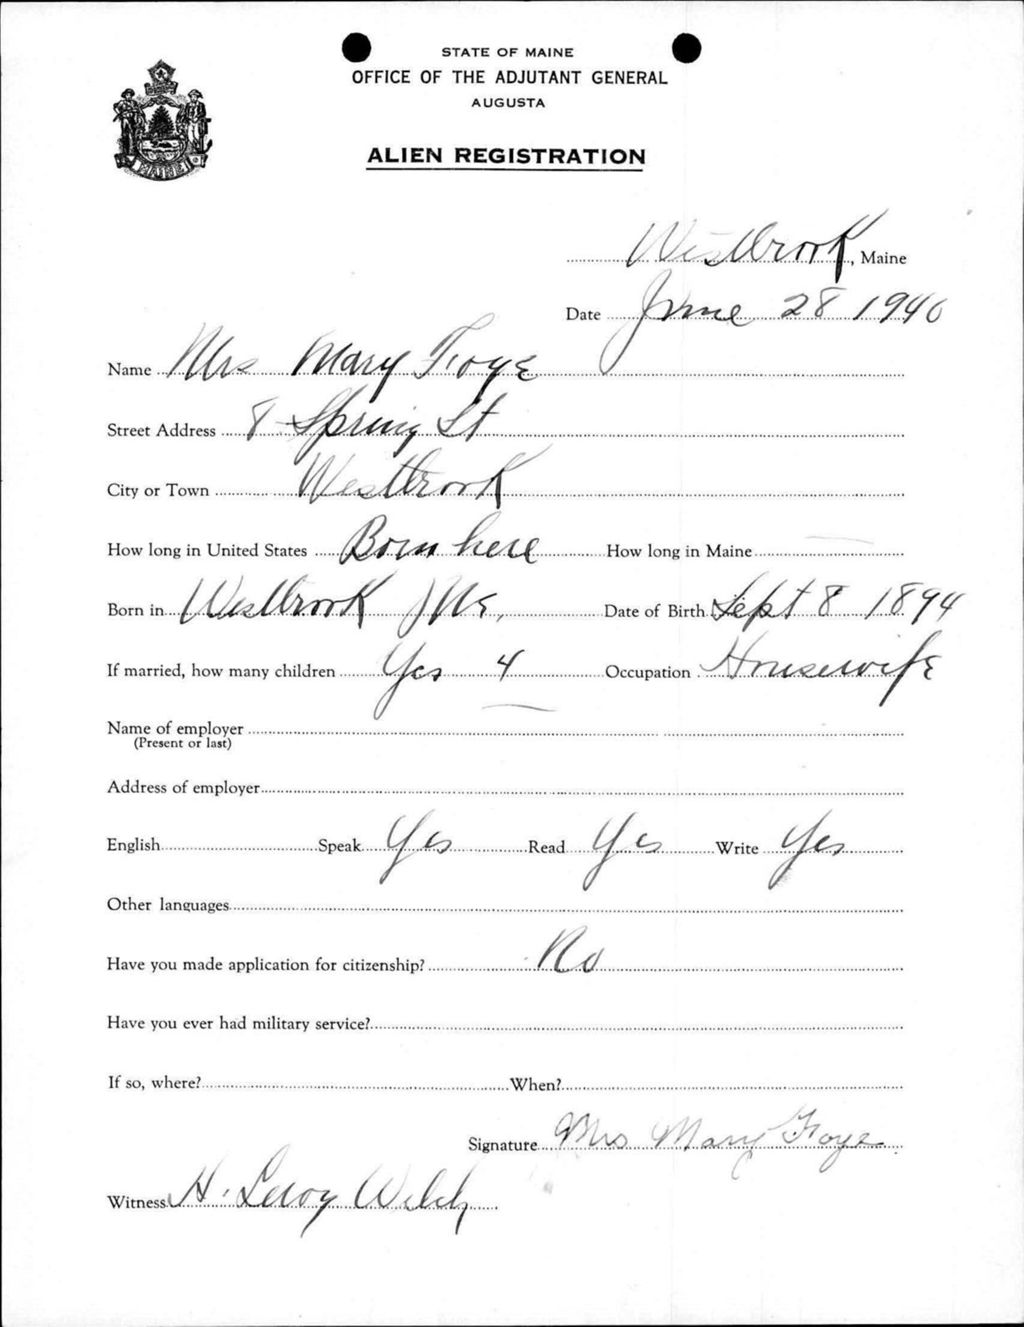 STATE OF MAINE
OFFICE OF THE ADJUTANT GENERAL
AUGUSTA
ALIEN REGISTRATION
MAINE
Westbrook, Maine
Date June 28 1940
Name Mrs Mary Foye
Street Address 8 Spring St
City or Town Westbrook
How long in United States Born here How long in Maine
Born in Westbrook Me, Date of Birth Sept 8 1894
If married, how many children Yes 4 Occupation Housewife
Name of employer
(Present or last)
Address of employer
English Speak Yes Read Yes Write Yes
Other languages
Have you made application for citizenship? No
Have you ever had military service?
If so, where? When?
Signature Mrs Mary Foye
Witness H. Leroy Welch